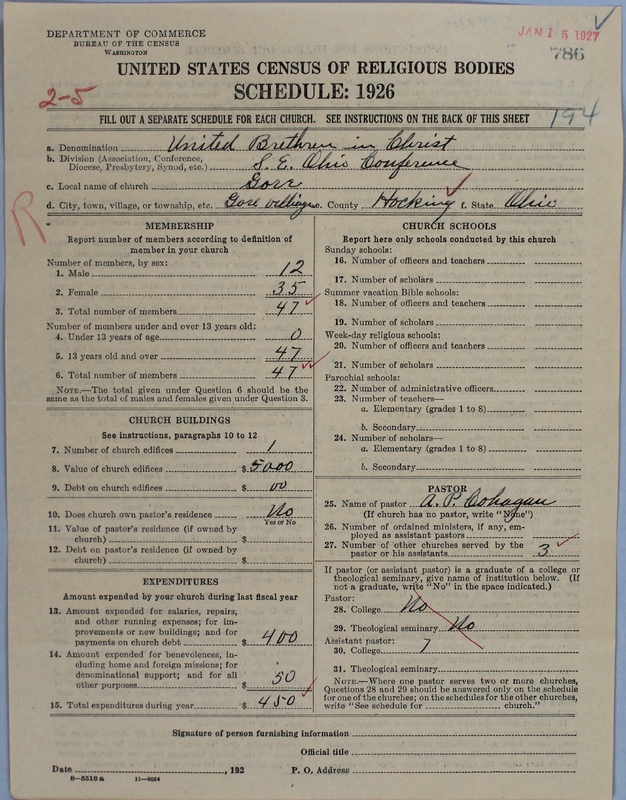 DEPARTMENT OF COMMERCE
BUREAU OF THE CENSUS
WASHINGTON
JAN 15 1927
786
UNITED STATES CENSUS OF RELIGIOUS BODIES
SCHEDULE: 1926
2-5
FILL OUT A SEPARATE SCHEDULE FOR EACH CHURCH. SEE INSTRUCTIONS ON THE BACK OF THIS SHEET
194
a. Denomination United Brethren in Christ
b. Division (Association, Conference, Diocese, Presbytery, Synod, etc.) S. E. Ohio Conference
c. Local name of church Gore
d. City, town, village, or township, etc. Gore village e. County Hocking f. State Ohio
R
MEMBERSHIP
Report number of members according to definition of
member in your church
Number of members, by sex:
1. Male 12
2. Female 35
3. Total number of members 47
Number of members under and over 13 years old:
4. Under 13 years of age 0
5. 13 years old and over 47
6. Total number of members 47
NOTE.—The total given under Question 6 should be
same as the total of males and females given under Question 3.
CHURCH BUILDINGS
See instructions, paragraphs 10 to 12
7. Number of church edifices 1
8. Value of church edifices $ 5000
9. Debt on church edifices $ 00
10. Does church own pastor's residence No
Yes or No
11. Value of pastor's residence (if owned by
church) $
12. Debt on pastor's residence (if owned by
church) $
EXPENDITURES
Amount expended by your church during last fiscal year
13. Amount expended for salaries, repairs,
and other running expenses; for im-
provements or new buildings; and for
payments on church debt $ 400
14. Amount expended for benevolences, in-
cluding home and foreign missions; for
denominational support; and for all
other purposes $ 50
15. Total expenditures during year $ 450
CHURCH SCHOOLS
Report here only schools conducted by this church
Sunday schools:
16. Number of officers and teachers
17. Number of scholars
Summer vacation Bible schools:
18. Number of officers and teachers
19. Number of scholars
Week-day religious schools:
20. Number of officers and teachers
21. Number of scholars
Parochial schools:
22. Number of administrative officers
23. Number of teachers—
a. Elementary (grades 1 to 8)
b. Secondary
24. Number of scholars—
a. Elementary (grades 1 to 8)
b. Secondary
PASTOR
25. Name of pastor A. P. Cohagan
(If church has no pastor, write "None")
26. Number of ordained ministers, if any, em-
ployed as assistant pastors
27. Number of other churches served by the
pastor or his assistants 3
If pastor (or assistant pastor) is a graduate of a college or
theological seminary, give name of institution below. (If
not a graduate, write "No" in the space indicated.)
Pastor:
28. College No
29. Theological seminary No
Assistant pastor:
30. College
31. Theological seminary
NOTE.—Where one pastor serves two or more churches,
Questions 28 and 29 should be answered only on the schedule
for one of the churches; on the schedules for the other churches,
write "See schedule for church."
Signature of person furnishing information
Official title
Date , 192 P. O. Address
8-5518 a 11-9034